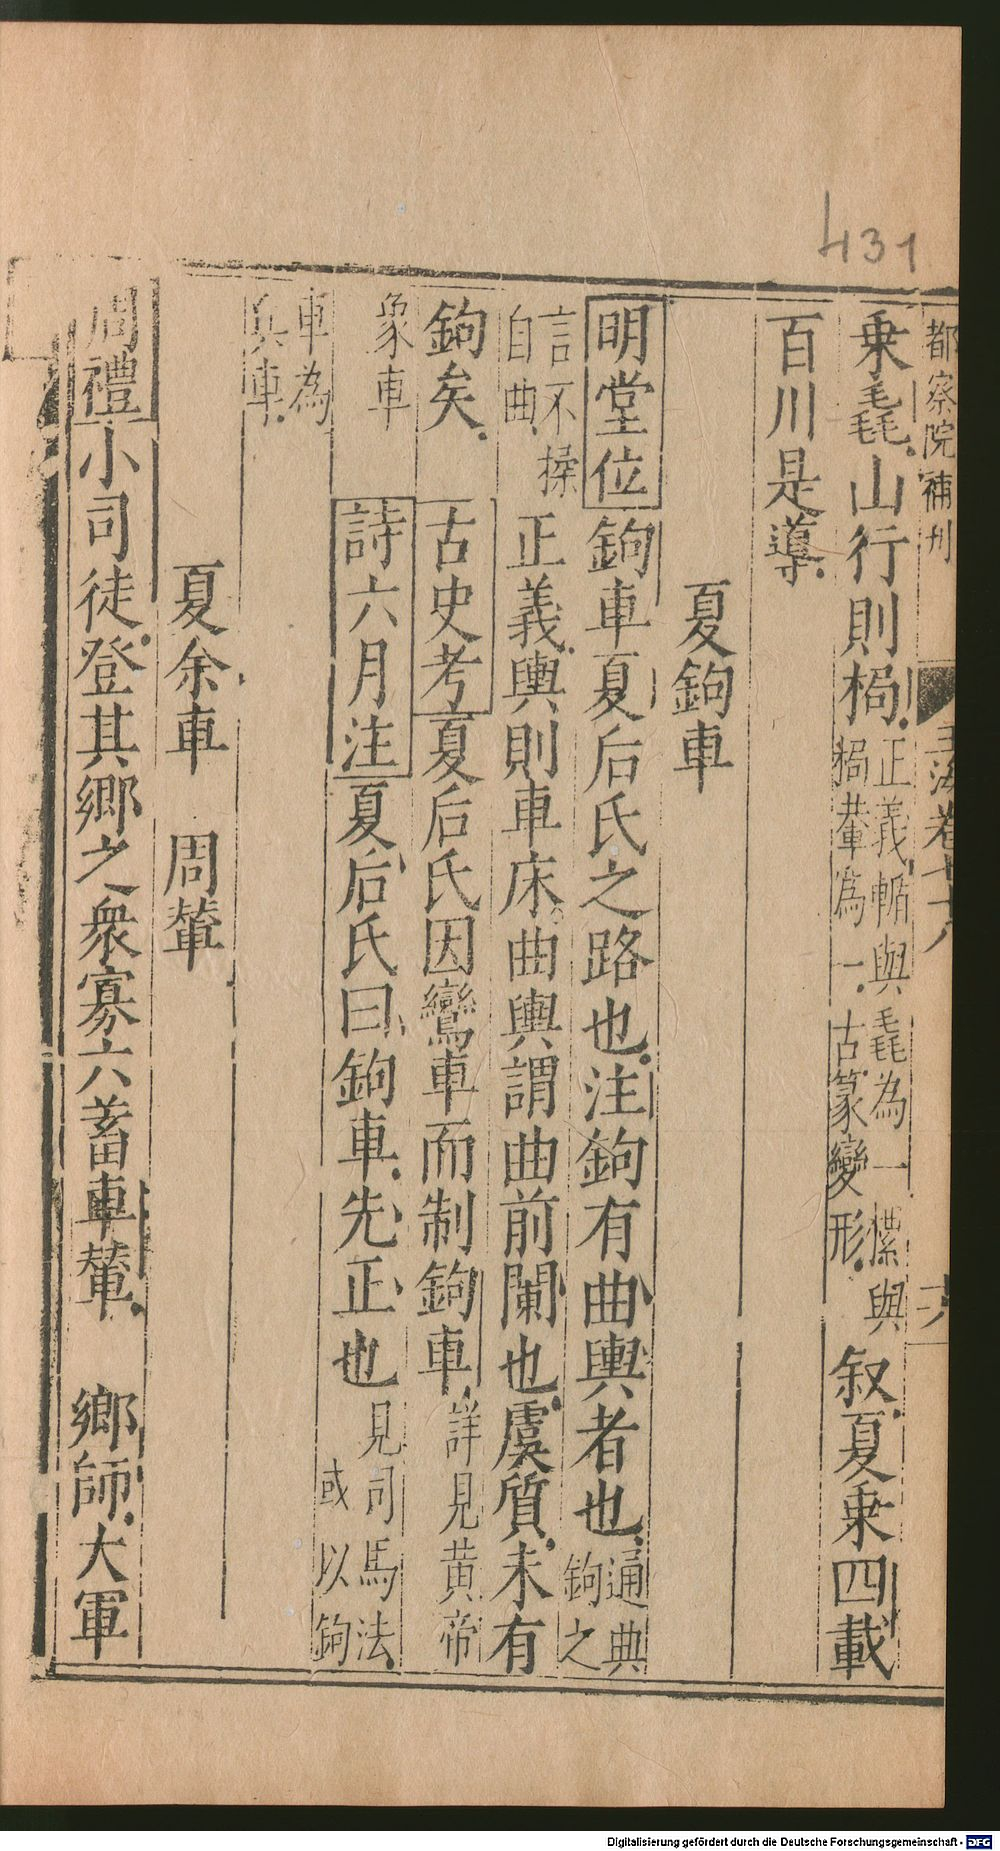 431
都察院補刊
玉海卷七十八
十六
乗毳山行則梮正義輴與毳為一檋與梮輂為一古篆變形叙夏乗四載
百川是導
夏鉤車
明堂位鉤車夏后氏之路也注鉤有曲輿者也通典鉤之
言不揉自曲正義輿則車床曲輿謂曲前闌也虞質未有
鉤矣古史考夏后氏因鸞車而制鉤車詳見黄帝
象車詩六月注夏后氏曰鉤車先正也見司馬法或以鉤
車為兵車
夏余車 周輦
周禮小司徒登其鄉之衆寡六畜車輦 鄉師大軍
Digitalisierung gefördert durch die Deutsche Forschungsgemeinschaft - DFG